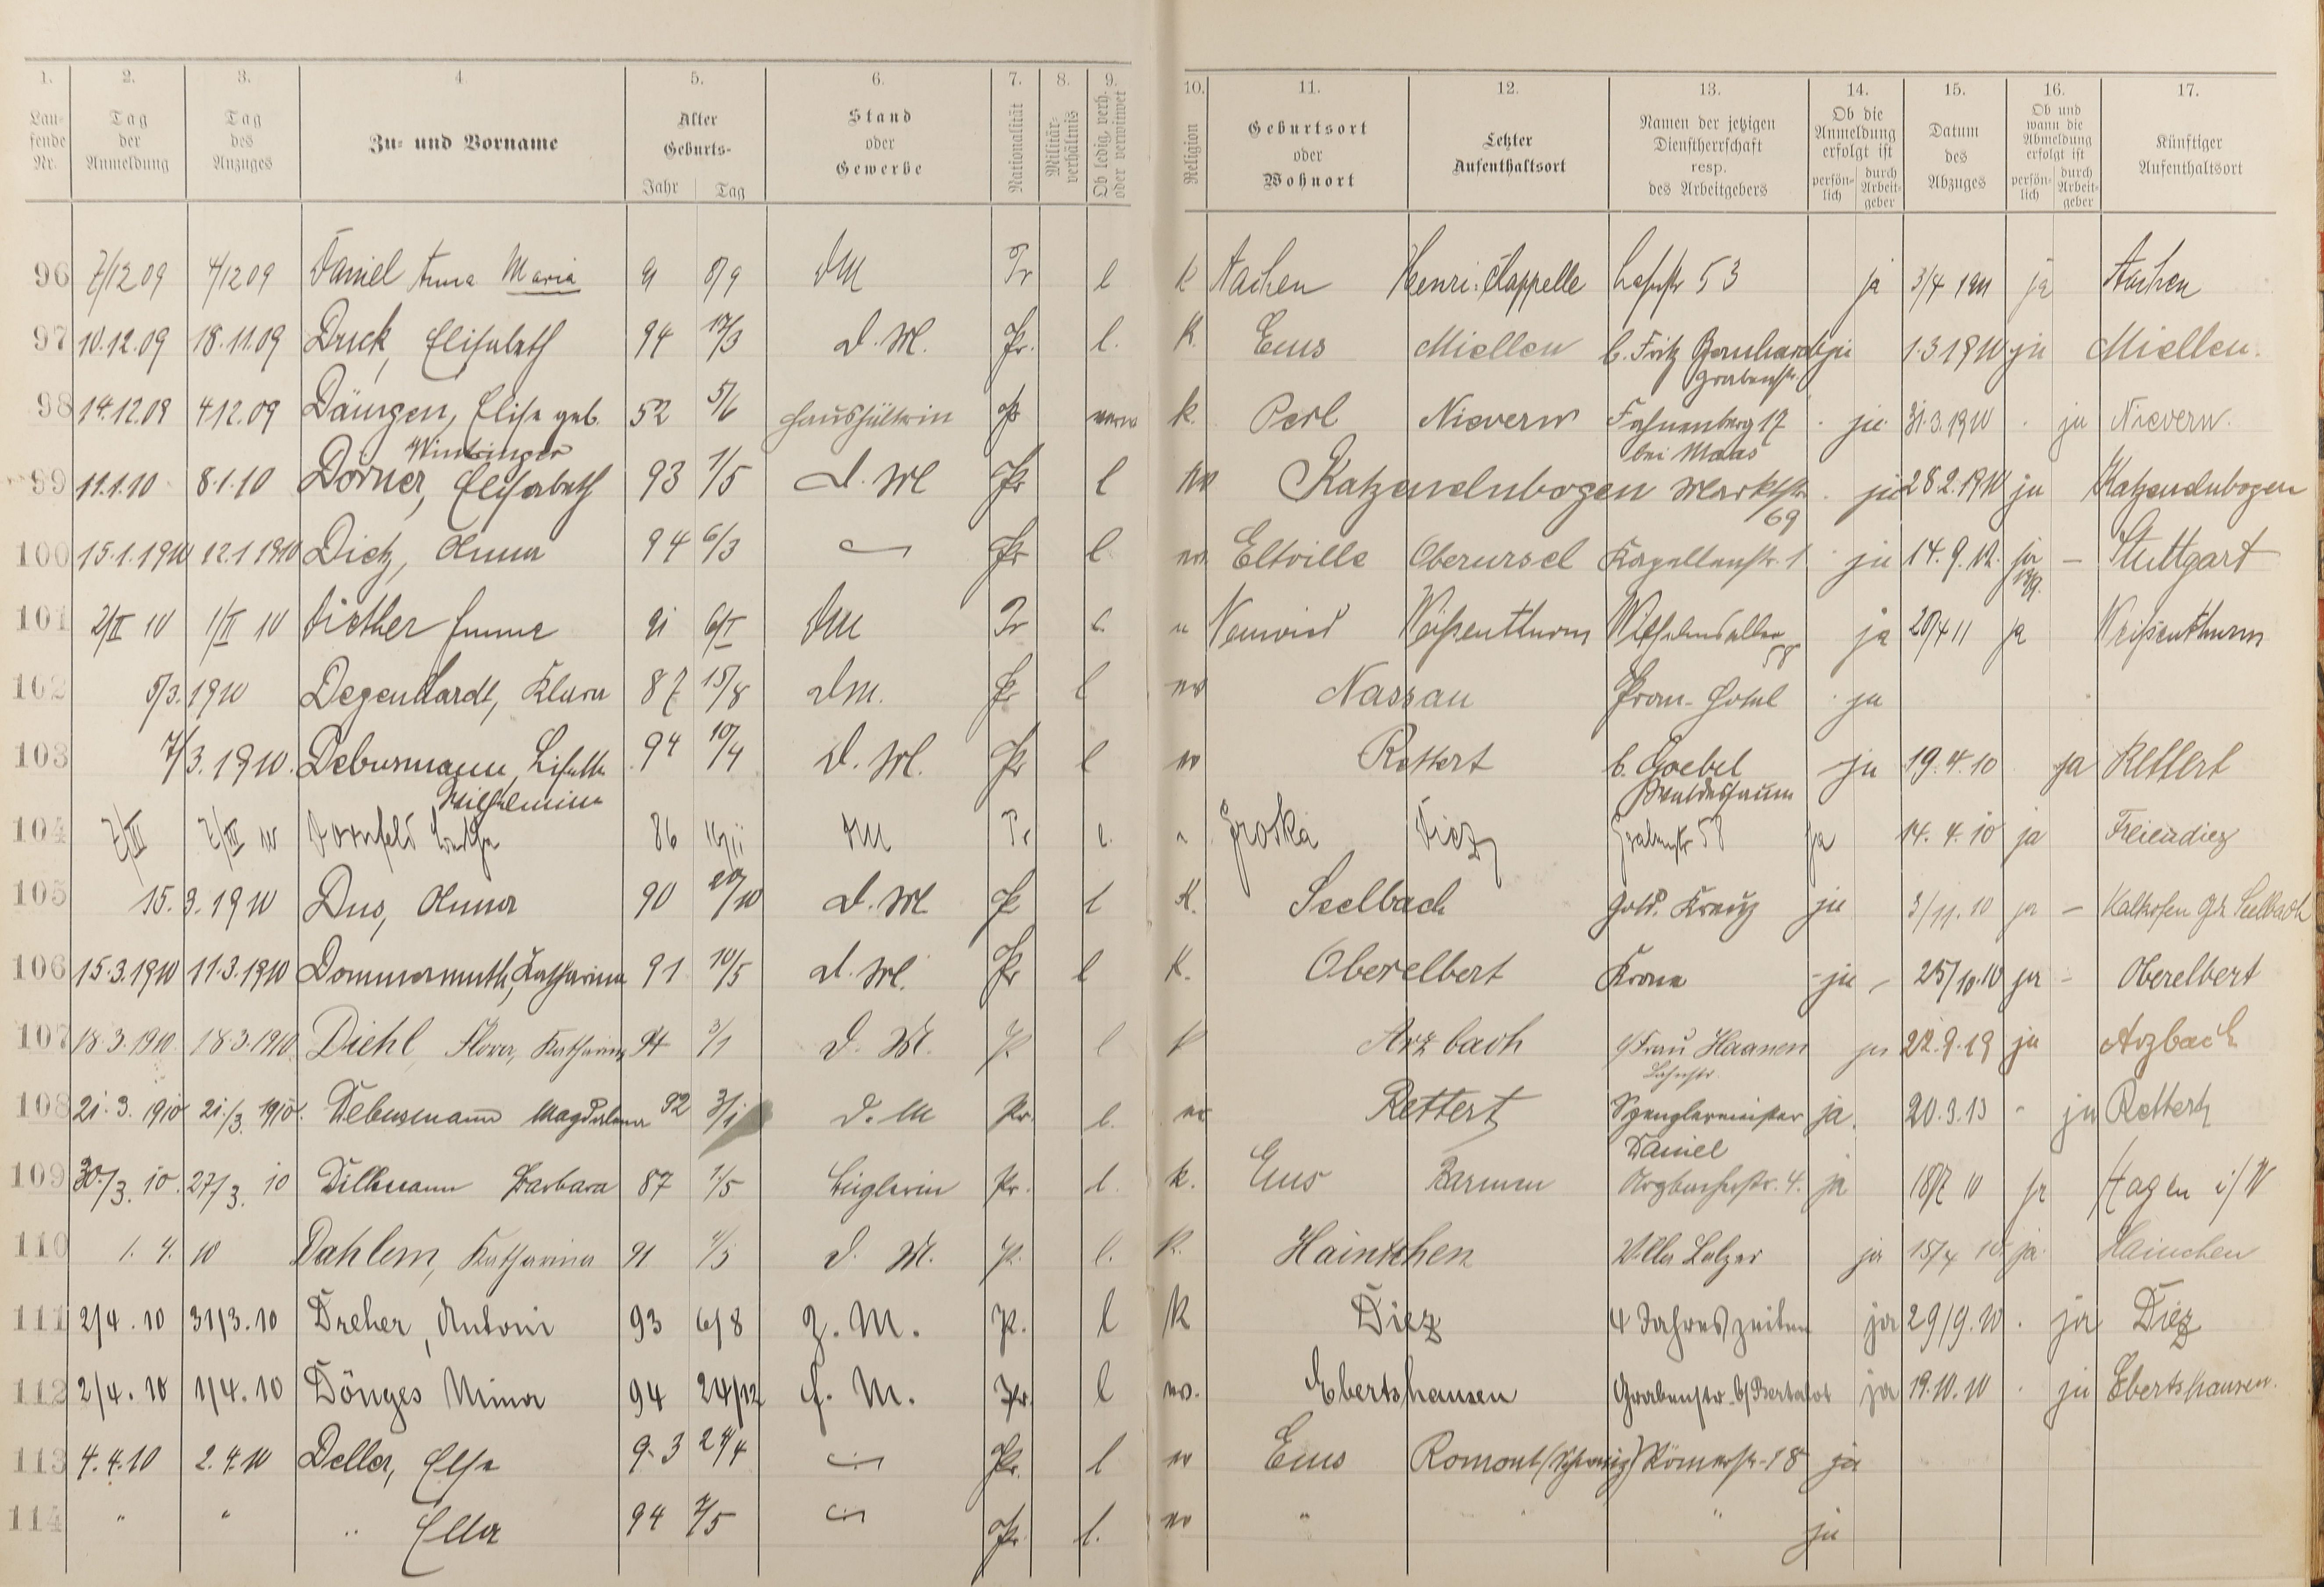 1. 2. 3. 4. 5. 6. 7. 8. 9. 10. 11. 12. 13. 14. 15. 16. 17.
Laufende Nr. Tag der Anmeldung Tag des Anzuges Zu- und Vorname Alter Geburts- Jahr Tag Stand oder Gewerbe Nationalität Militärverhältnis Ob ledig, verh. oder verwitwet Religion Geburtsort oder Wohnort Letzter Aufenthaltsort Namen der jetzigen Dienstherrschaft resp. des Arbeitgebers Ob die Anmeldung erfolgt ist persönlich durch Arbeitgeber Datum des Abzuges Ob und wann die Abmeldung erfolgt ist persönlich durch Arbeitgeber Künftiger Aufenthaltsort
96 7/12 09 4/12 09 Daniel Anna Maria 91 8/9 DM Pr l k Aachen Henri-Chappelle Lahnstr 53 ja 3/4 1911 ja Aachen
97 10.12.09 18.11.09 Druck, Elisabeth 94 17/3 D. M. Pr. l. K. Ems Miellen b. Fritz Bernhardt ja 1.3 1910 ja Miellen.
Grabenstr.
98 14.12.09 4.12.09 Dängen, Elise geb. 52 5/6 Haushälterin Pr verw k. Perl Nievern Fahnenberg 17 ja 31.3.1910 ja Nievern.
Wintringer bei Maas
99 11.1.10 8.1.10 Dörner, Elisabeth 93 1/5 D. M Pr l ev Katzenelnbogen Marktstr ja 28.2.1910 ja Katzenelnbogen
69
100 15.1.1910 12.1.1910 Dietz, Anna 94 6/3 Pr l ev. Eltville Oberursel Kapellenstr. 1 ja 14.9.12. ja – Stuttgart
101 2/II 10 1/II 10 Diether Emma 91 6/I DM Pr l. " Neuwied Weißenthurm Wilhelmsallee ja 20/4 11 ja Weißenthurm
58
102 5/3. 1910 Degenhardt, Klara 87 15/8 DM. Pr l ev Nassau Prom-Hotel ja
103 7/3. 1910. Debusmann, Lisette 94 10/4 D. M. Pr l ev Rettert b. Goebel ja 19.4.10 ja Rettert
Wilhelmine Waldessaum
104 7/III 7/III 10 Dornfeld 86 DM Pr l. " Diez Grabenstr 58 ja 14. 4. 10 ja Freiendiez
105 15. 3. 1910 Dus, Anna 90 20/10 D. M Pr l K. Seelbach Gold. Kreuz ja 3/11. 10 ja – Kalkofen Seelbach
106 15.3.1910 11.3.1910 Dommermuth, Katharina 91 10/5 D. M. Pr l K. Oberelbert Krone ja 25/10.10 ja – Oberelbert
107 18.3.1910 18.3.1910. Diehl, Flora, Katharina 94 3/1 D. M. P. l k Arzbach b/Frau Haanen ja 22.9.19 ja Arzbach
Lahnstr.
108 21. 3. 1910 21./3. 1910. Debusmann Magdalena 92 3/1 D. M Pr. l. ev Rettert Spenglermeister ja. 20.3.13 - ja Rettert
Daniel
109 30./3. 10. 27/3. 10 Dillmann Barbara 87 1/5 Büglerin Pr. l. k. Ems Barmen Arzbacherstr. 4. ja 18/7 10 ja Hagen i/W
110 1. 4. 10 Dahlem, Katharina 91 D. M. P. l. k. Haintchen Villa Balzer ja 15/4 10 ja Hainchen
111 2/4. 10 31/3. 10 Dreher, Antoni 93 6/8 Z. M. P. l k Diez 4 Jahreszeiten ja 29/9. 10 . ja Diez
112 2/4. 10 1/4. 10 Dönges Mina 94 24/12 D. M. Pr. l ev. Ebertshausen Grabenstr. b/Bertalot ja 19.10.10 . ja Ebertshausen.
113 4.4.10 2.4.10 Deller, Else 93 Pr. l ev Ems Romont (Schweiz) Römerstr. 18 ja
114 " " " Ella 94 7/5 Pr l. ev " " " ja